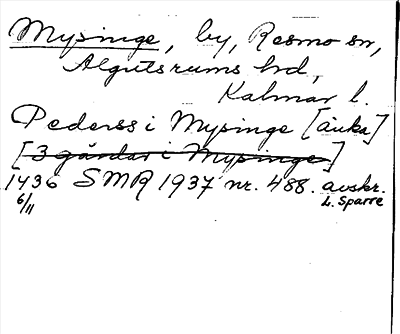 Mysinge, by, Resmo sn,
Algutsrums hd,
Kalmar l.
Pederss i Mysinge [änka]
[3 gårdar i Mysinge]
1436 SMR 1937 nr. 488. avskr.
6/11 L. Sparre